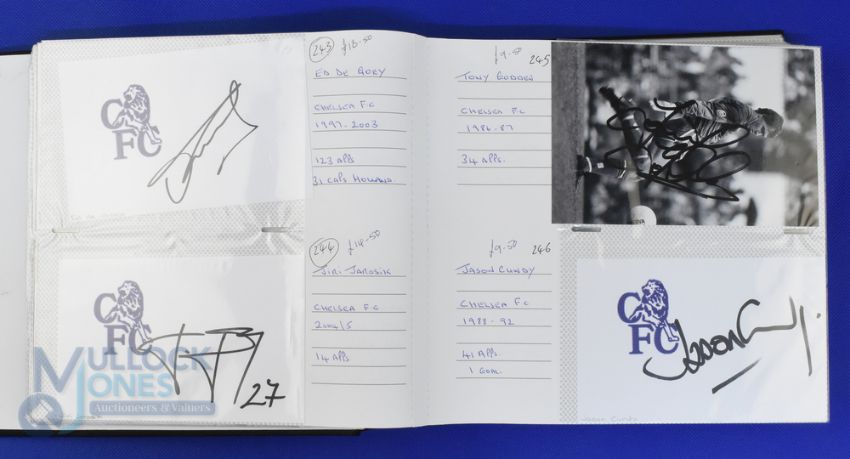 243 £18.50
ED DE GOEY
CHELSEA FC
1997-2003
123 APPS
31 CAPS HOLLAND.
CFC
244 £14.50
JIRI JAROSIK
CHELSEA FC
2004/5
14 APPS
CFC
27
£9.50 245
TONY GODDEN
CHELSEA FC
1986-87
34 APPS.
£9.50 246
JASON CUNDY
CHELSEA FC
1988-92
41 APPS.
1 GOAL.
CFC
Jason Cundy
MULLOCK
JONES
Auctioneers & Valuers